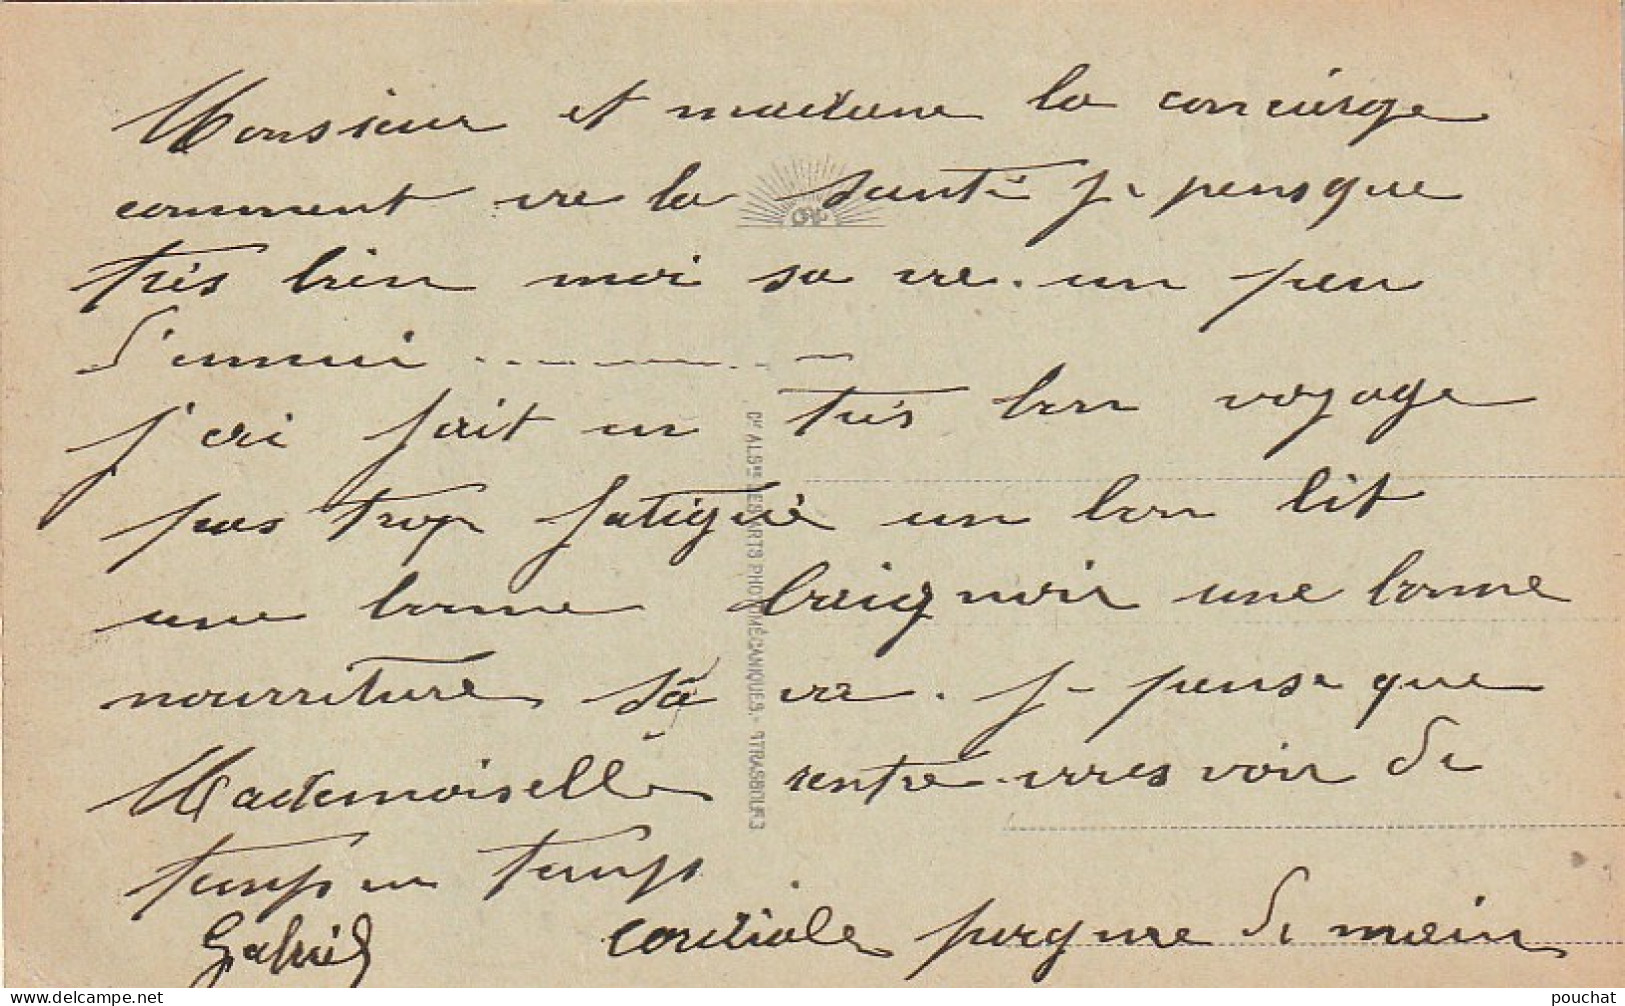 Monsieur et madame la concierge
comment va la santé je pense que
très bien moi sa va. un peu
d'ennui
j'ai fait un très bon voyage
pas trop fatigué un bon lit
une bonne baignoir une bonne
nourriture sa va. je pense que
Mademoiselle rentre vous voir de
temps en temps
Gabriel cordiale pognee de main
Cie ALSne DES ARTS PHOTOMÉCANIQUES, - STRASBOURG
pouchat